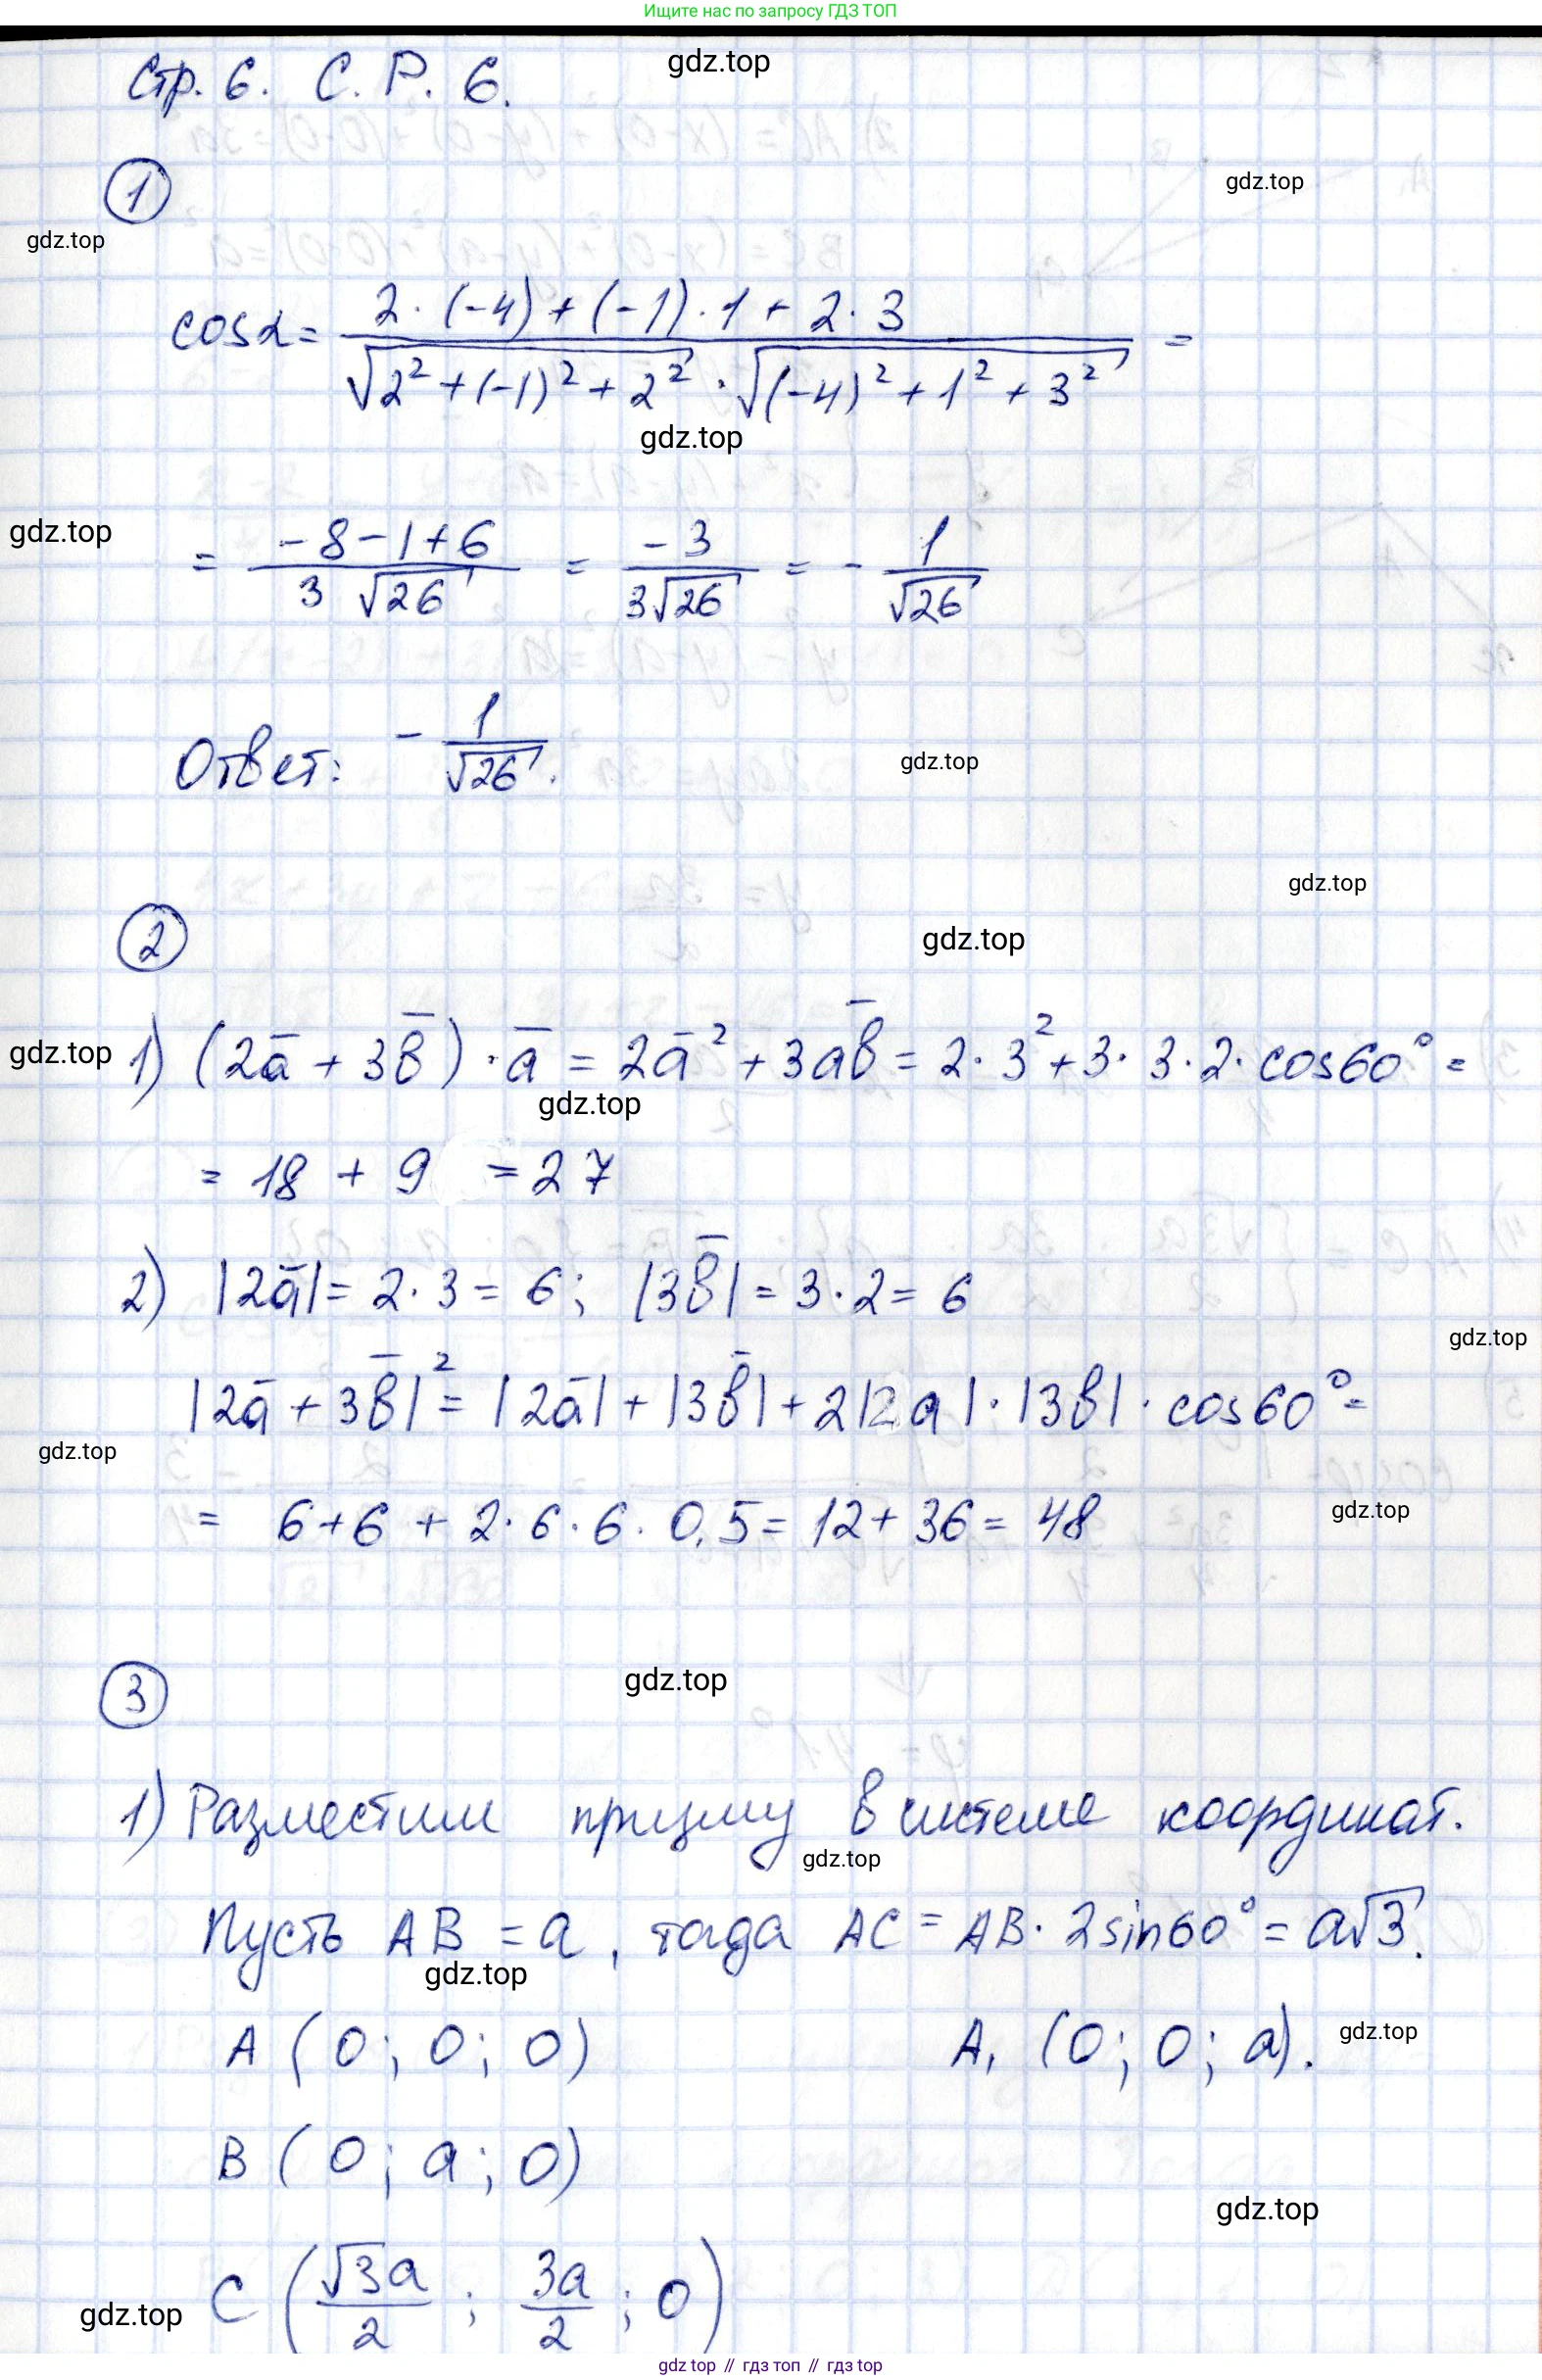 Ищите нас по запросу ГДЗ ТОП
Стр. 6. С. Р. 6.
gdz.top
1
gdz.top
gdz.top
cosα = (2·(-4)+(-1)·1+2·3)/(√(2²+(-1)²+2²)·√((-4)²+1²+3²)) =
gdz.top
gdz.top
= (-8-1+6)/(3√26) = -3/(3√26) = -1/√26
Ответ: -1/√26.
gdz.top
gdz.top
2
gdz.top
gdz.top
1) (2a̅ + 3b̅)·a̅ = 2a̅² + 3ab̅ = 2·3² + 3·3·2·cos60° =
gdz.top
= 18 + 9 = 27
2) |2a̅| = 2·3 = 6; |3b̅| = 3·2 = 6
gdz.top
|2a̅ + 3b̅|² = |2a̅| + |3b̅| + 2|2a|·|3b|·cos60° =
gdz.top
= 6+6 + 2·6·6·0,5 = 12 + 36 = 48
gdz.top
3
gdz.top
1) Разместим призму в системе координат.
gdz.top
Пусть AB = a, тогда AC = AB·2sin60° = a√3.
gdz.top
A (0; 0; 0) A₁ (0; 0; a).
gdz.top
B (0; a; 0)
gdz.top
C (√3a/2; 3a/2; 0)
gdz.top
gdz top // гдз топ // гдз top